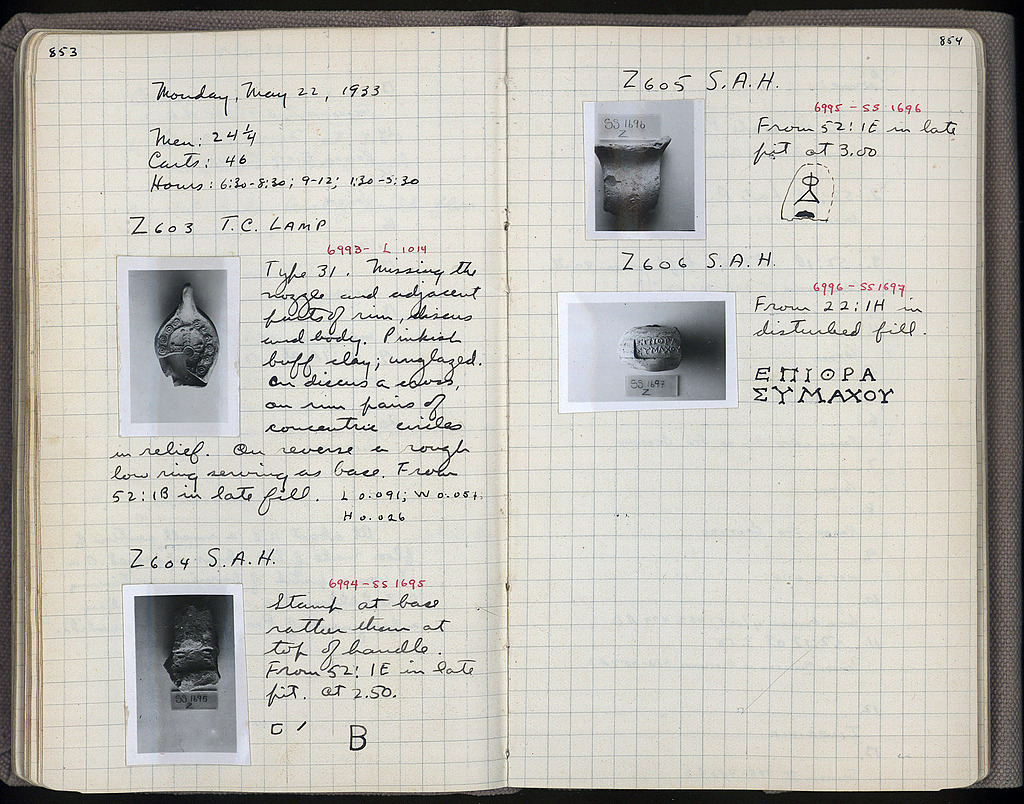 853
Monday, May 22, 1933
Men: 24 1/4
Carts: 46
Hours: 6:30-8:30; 9-12; 1:30-5:30
Z603 T.C. LAMP
6993- L 1014
Type 31. Missing the
nozzle and adjacent
parts of rim, discus
and body. Pinkish
buff clay; unglazed.
On discus a cross,
on rim pairs of
concentric circles
in relief. On reverse a rough
low ring serving as base. From
52:1B in late fill. L 0.091; W 0.057.
H 0.026
Z604 S.A.H.
6994-SS 1695
Stamp at base
rather than at
top of handle.
From 52:1E in late
pit. at 2.50.
B
SS 1695
Z
854
Z605 S.A.H.
6995-SS 1696
From 52:1E in late
pit at 3.00
SS 1696
Z
Z606 S.A.H.
6996-SS1697
From 22:1H in
disturbed fill.
ΕΠΙΘΡΑ
ΣΥΜΑΧΟΥ
SS 1697
Z